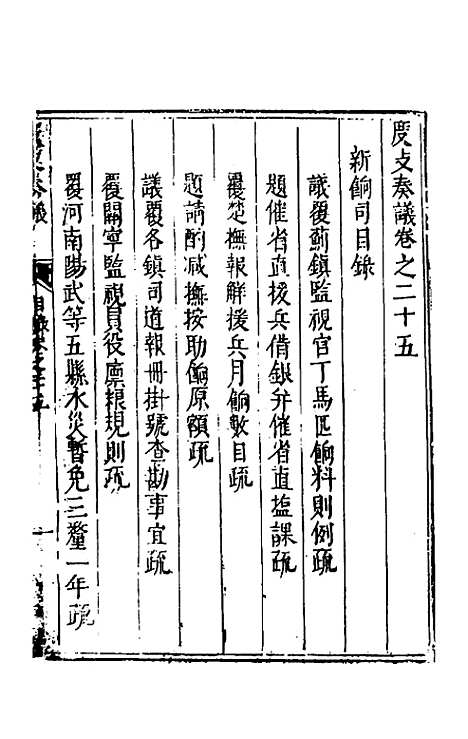 度支奏議卷之二十五
新餉司目錄
議覆薊鎮監視官丁馬匹餉料則例疏
題催省直援兵借銀并催省直塩課疏
覆楚撫報解援兵月餉數目疏
題請酌減撫按助餉原額疏
議覆各鎮司道報冊掛號查勘事宜疏
覆關寧監視員役廪糧規則疏
覆河南陽武等五縣水災暫免三釐一年疏
度支奏議
目錄卷之二十五
一